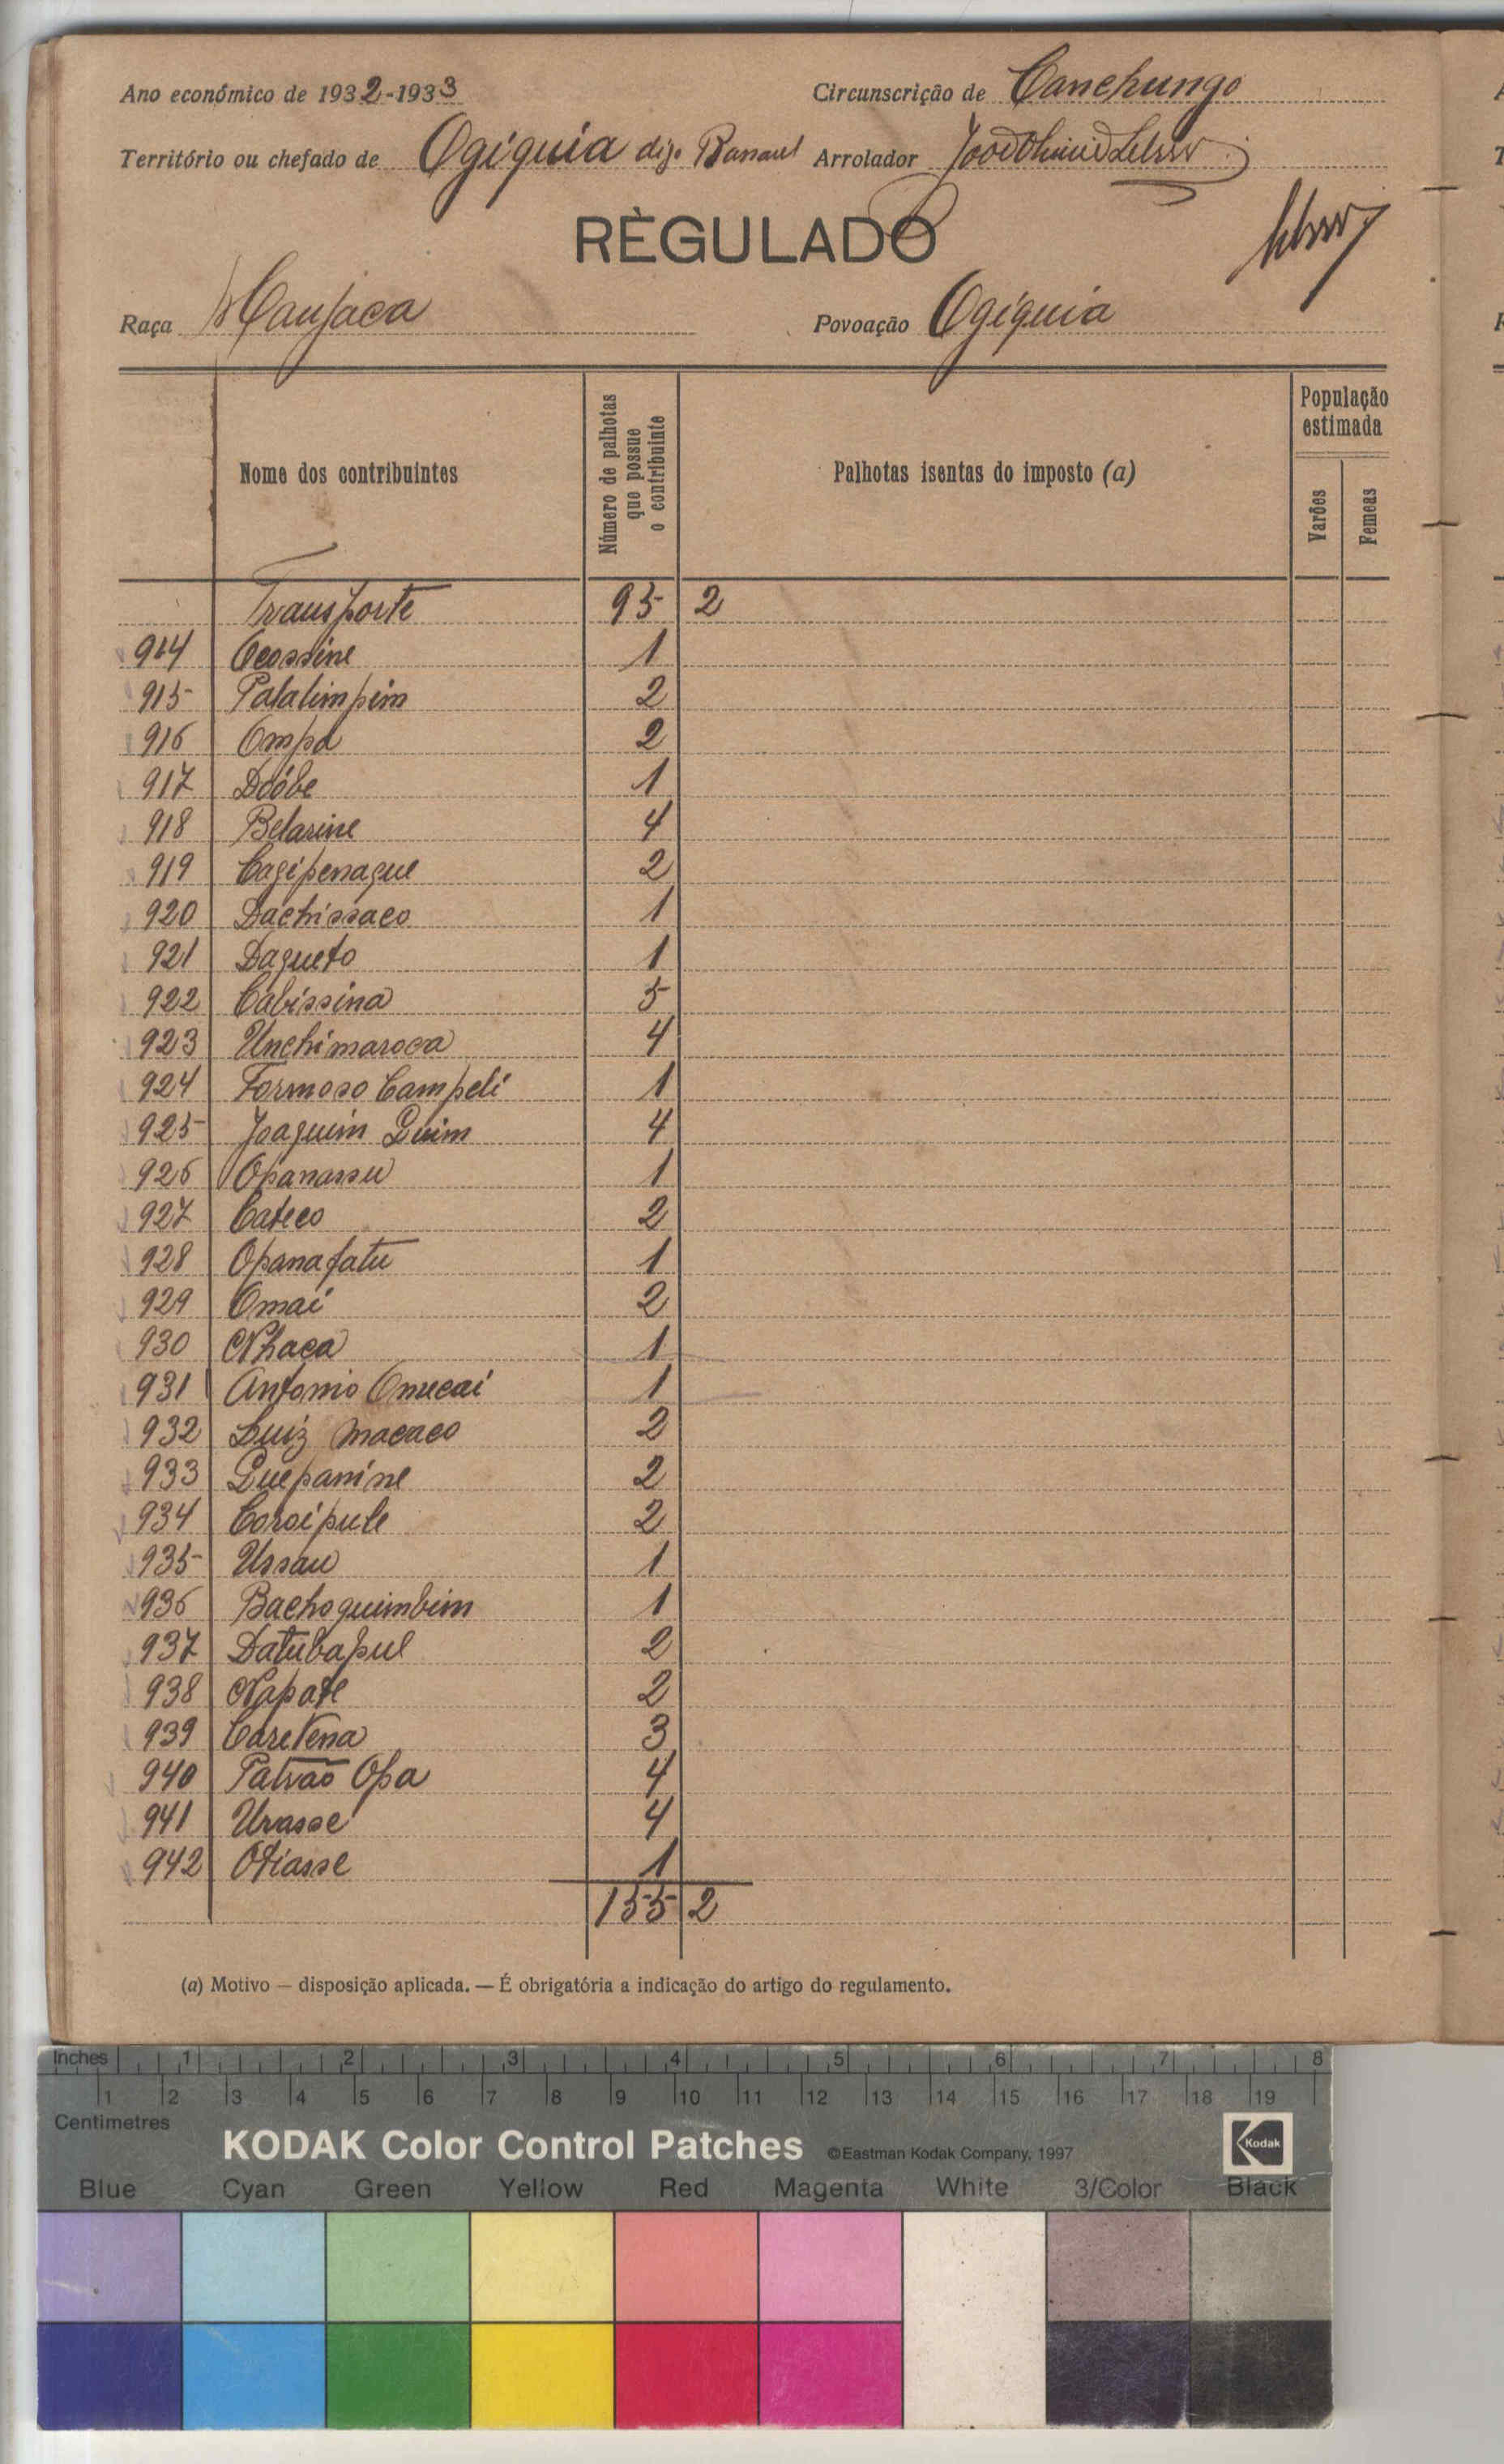 Ano económico de 1932-1933
Circunscrição de Canchungo
Território ou chefado de Ogiguia digo
Arrolador
RÈGULADO
Raça Manjaca
Povoação Ogiguia
Nome dos contribuintes
Número de palhotas que possue o contribuinte
Palhotas isentas do imposto (a)
População estimada
Varões
Femeas
Transporte 95 2
914 Ocossine 1
915 Palalimpim 2
916 Ompa 2
917 Doóbe 1
918 Belarine 4
919 Cagipenague 2
920 Dachissaco 1
921 Dagueto 1
922 Cabissina 5
923 Unchimaroca 4
924 Formoso Campeli 1
925 Joaquim Quim 4
926 Opanassu 1
927 Cateco 2
928 Opanafatu 1
929 Omai 2
930 Nhaca 1
931 Antonio Omucai 1
932 Luiz Macaco 2
933 Quepanine 2
934 Coroipule 2
935 Ussau 1
936 Bachoquimbim 1
937 Datubapul 2
938 Napate 2
939 Caretena 3
940 Patrão Opa 4
941 Urasse 4
942 Otiasse 1
155 2
(a) Motivo — disposição aplicada. — É obrigatória a indicação do artigo do regulamento.
Inches 1 2 3 4 5 6 7 8
1 2 3 4 5 6 7 8 9 10 11 12 13 14 15 16 17 18 19
Centimetres
KODAK Color Control Patches ©Eastman Kodak Company, 1997 Kodak
Blue Cyan Green Yellow Red Magenta White 3/Color Black